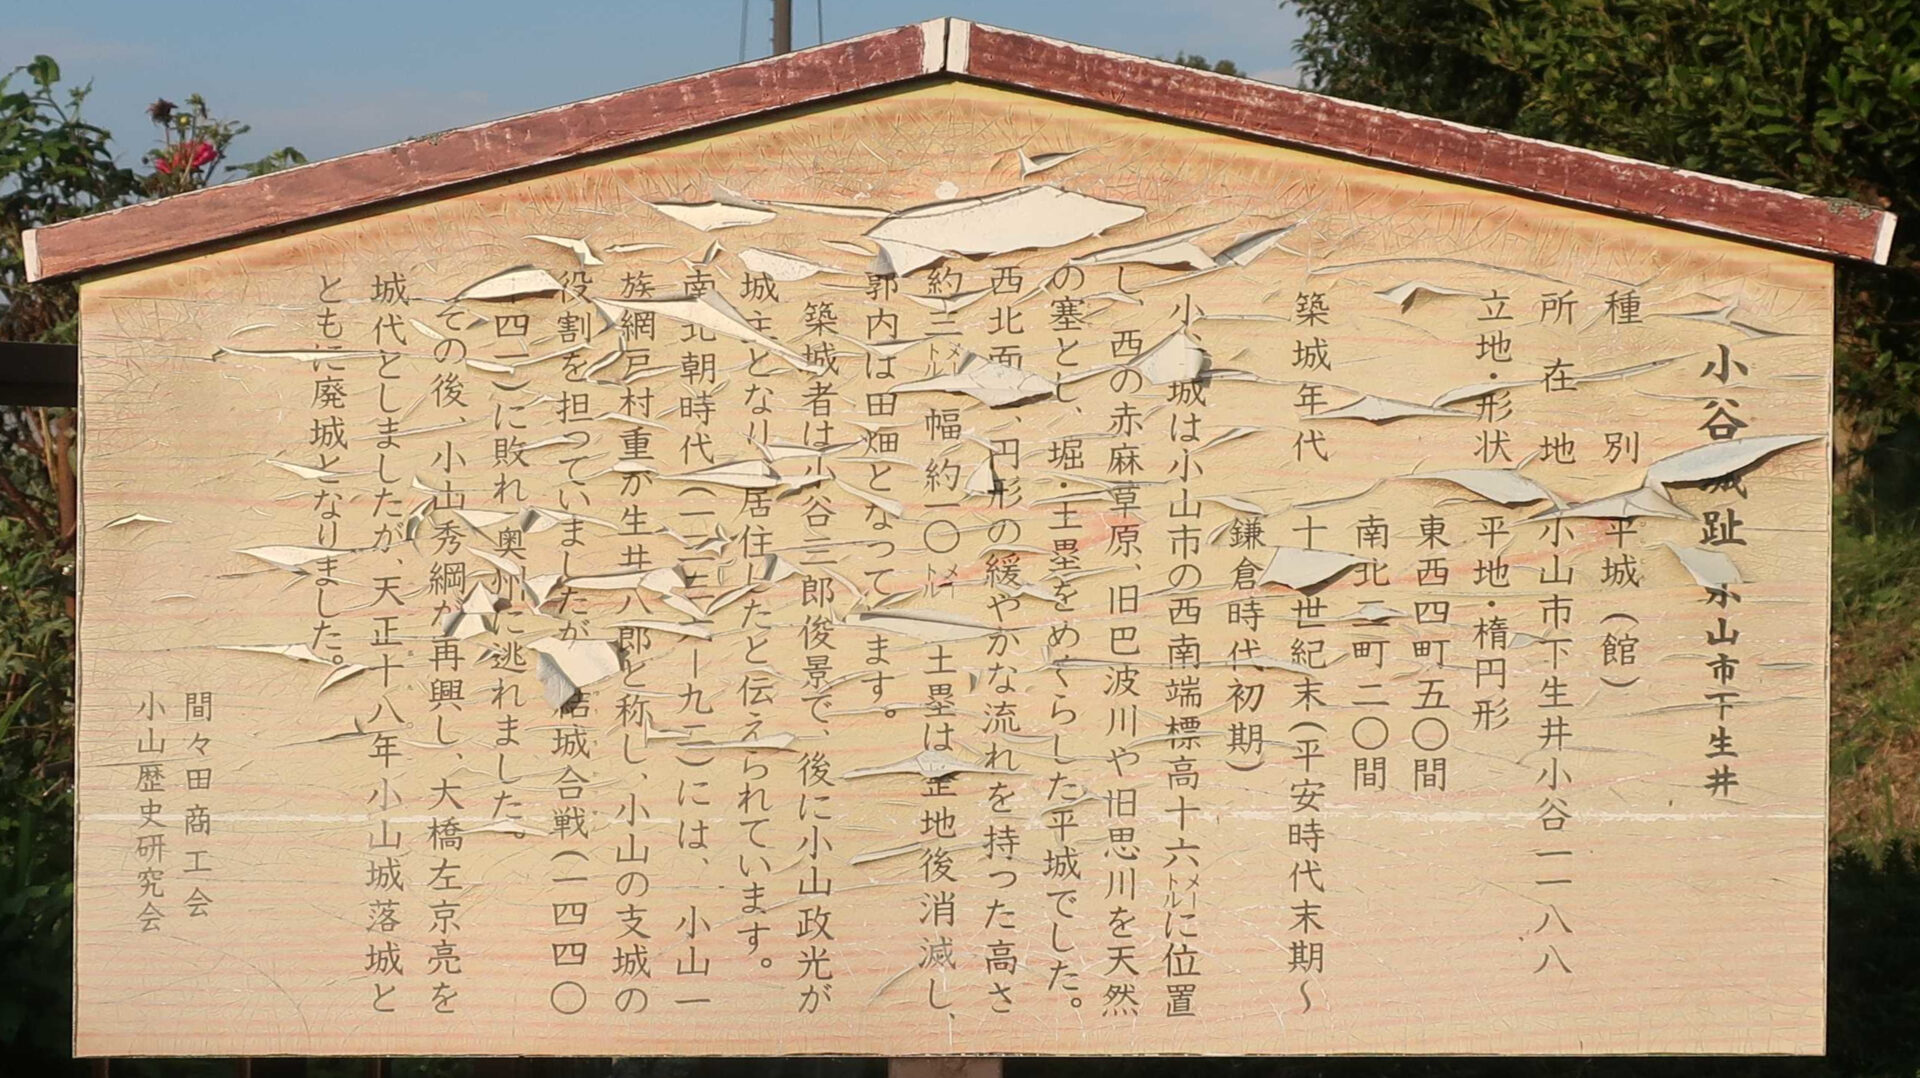 小谷城趾 小山市下生井
種別 平城（館）
所在地 小山市下生井小谷一一八八
立地・形状 平地・楕円形
東西四町五〇間
南北二町二〇間
築城年代 十 世紀末（平安時代末期〜
鎌倉時代初期）
小 城は小山市の西南端標高十六メートルに位置
し、西の赤麻草原、旧巴波川や旧思川を天然
の塞とし、堀・土塁をめぐらした平城でした。
西北面 、円形の緩やかな流れを持った高さ
約三メートル 幅約一〇メートル 土塁は 地後消滅し、
郭内は田畑となって ます。
築城者は小谷三郎俊景で、後に小山政光が
城主となり居住したと伝えられています。
南北朝時代（一三三六ー九二）には、小山一
族網戸村重が生井八郎と称し、小山の支城の
役割を担っていましたが 結城合戦（一四四〇
 四一）に敗れ 奥州に逃れました。
その後、小山秀綱が再興し、大橋左京亮を
城代としましたが、天正十八年小山城落城と
ともに廃城となりました。
間々田商工会
小山歴史研究会